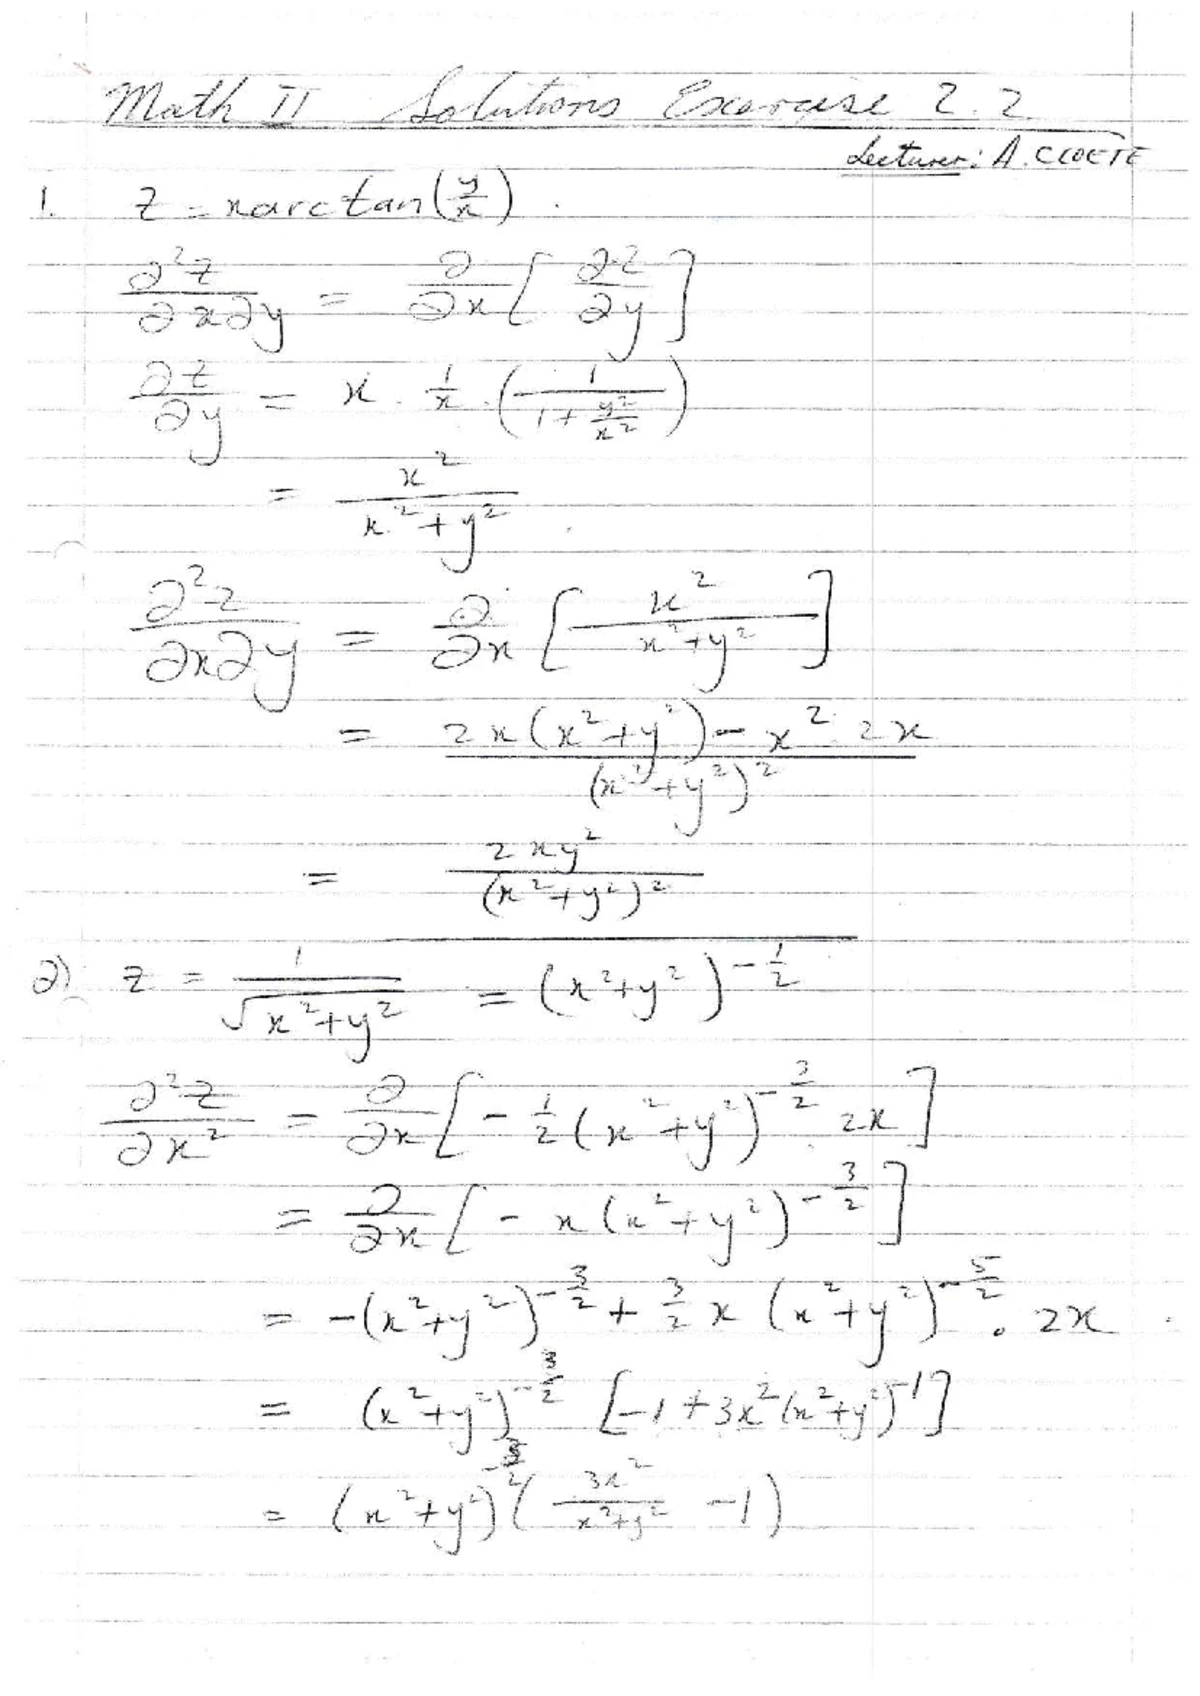 Math II Solutions Exercise 2.2
Lecturer: A. CLOETE
1. z = x arctan(y/x).
∂²z/∂x∂y = ∂/∂x [∂z/∂y]
∂z/∂y = x · 1/x · (1/(1 + y²/x²))
= x²/(x² + y²)
∂²z/∂x∂y = ∂/∂x [x²/(x² + y²)]
= (2x(x² + y²) - x² · 2x)/(x² + y²)²
= 2xy²/(x² + y²)²
2) z = 1/√(x² + y²) = (x² + y²)^(-1/2)
∂²z/∂x² = ∂/∂x [-1/2 (x² + y²)^(-3/2) · 2x]
= ∂/∂x [-x(x² + y²)^(-3/2)]
= -(x² + y²)^(-3/2) + 3/2 x (x² + y²)^(-5/2) · 2x
= (x² + y²)^(-3/2) [-1 + 3x²(x² + y²)^(-1)]
= (x² + y²)^(-3/2) (3x²/(x² + y²) - 1)